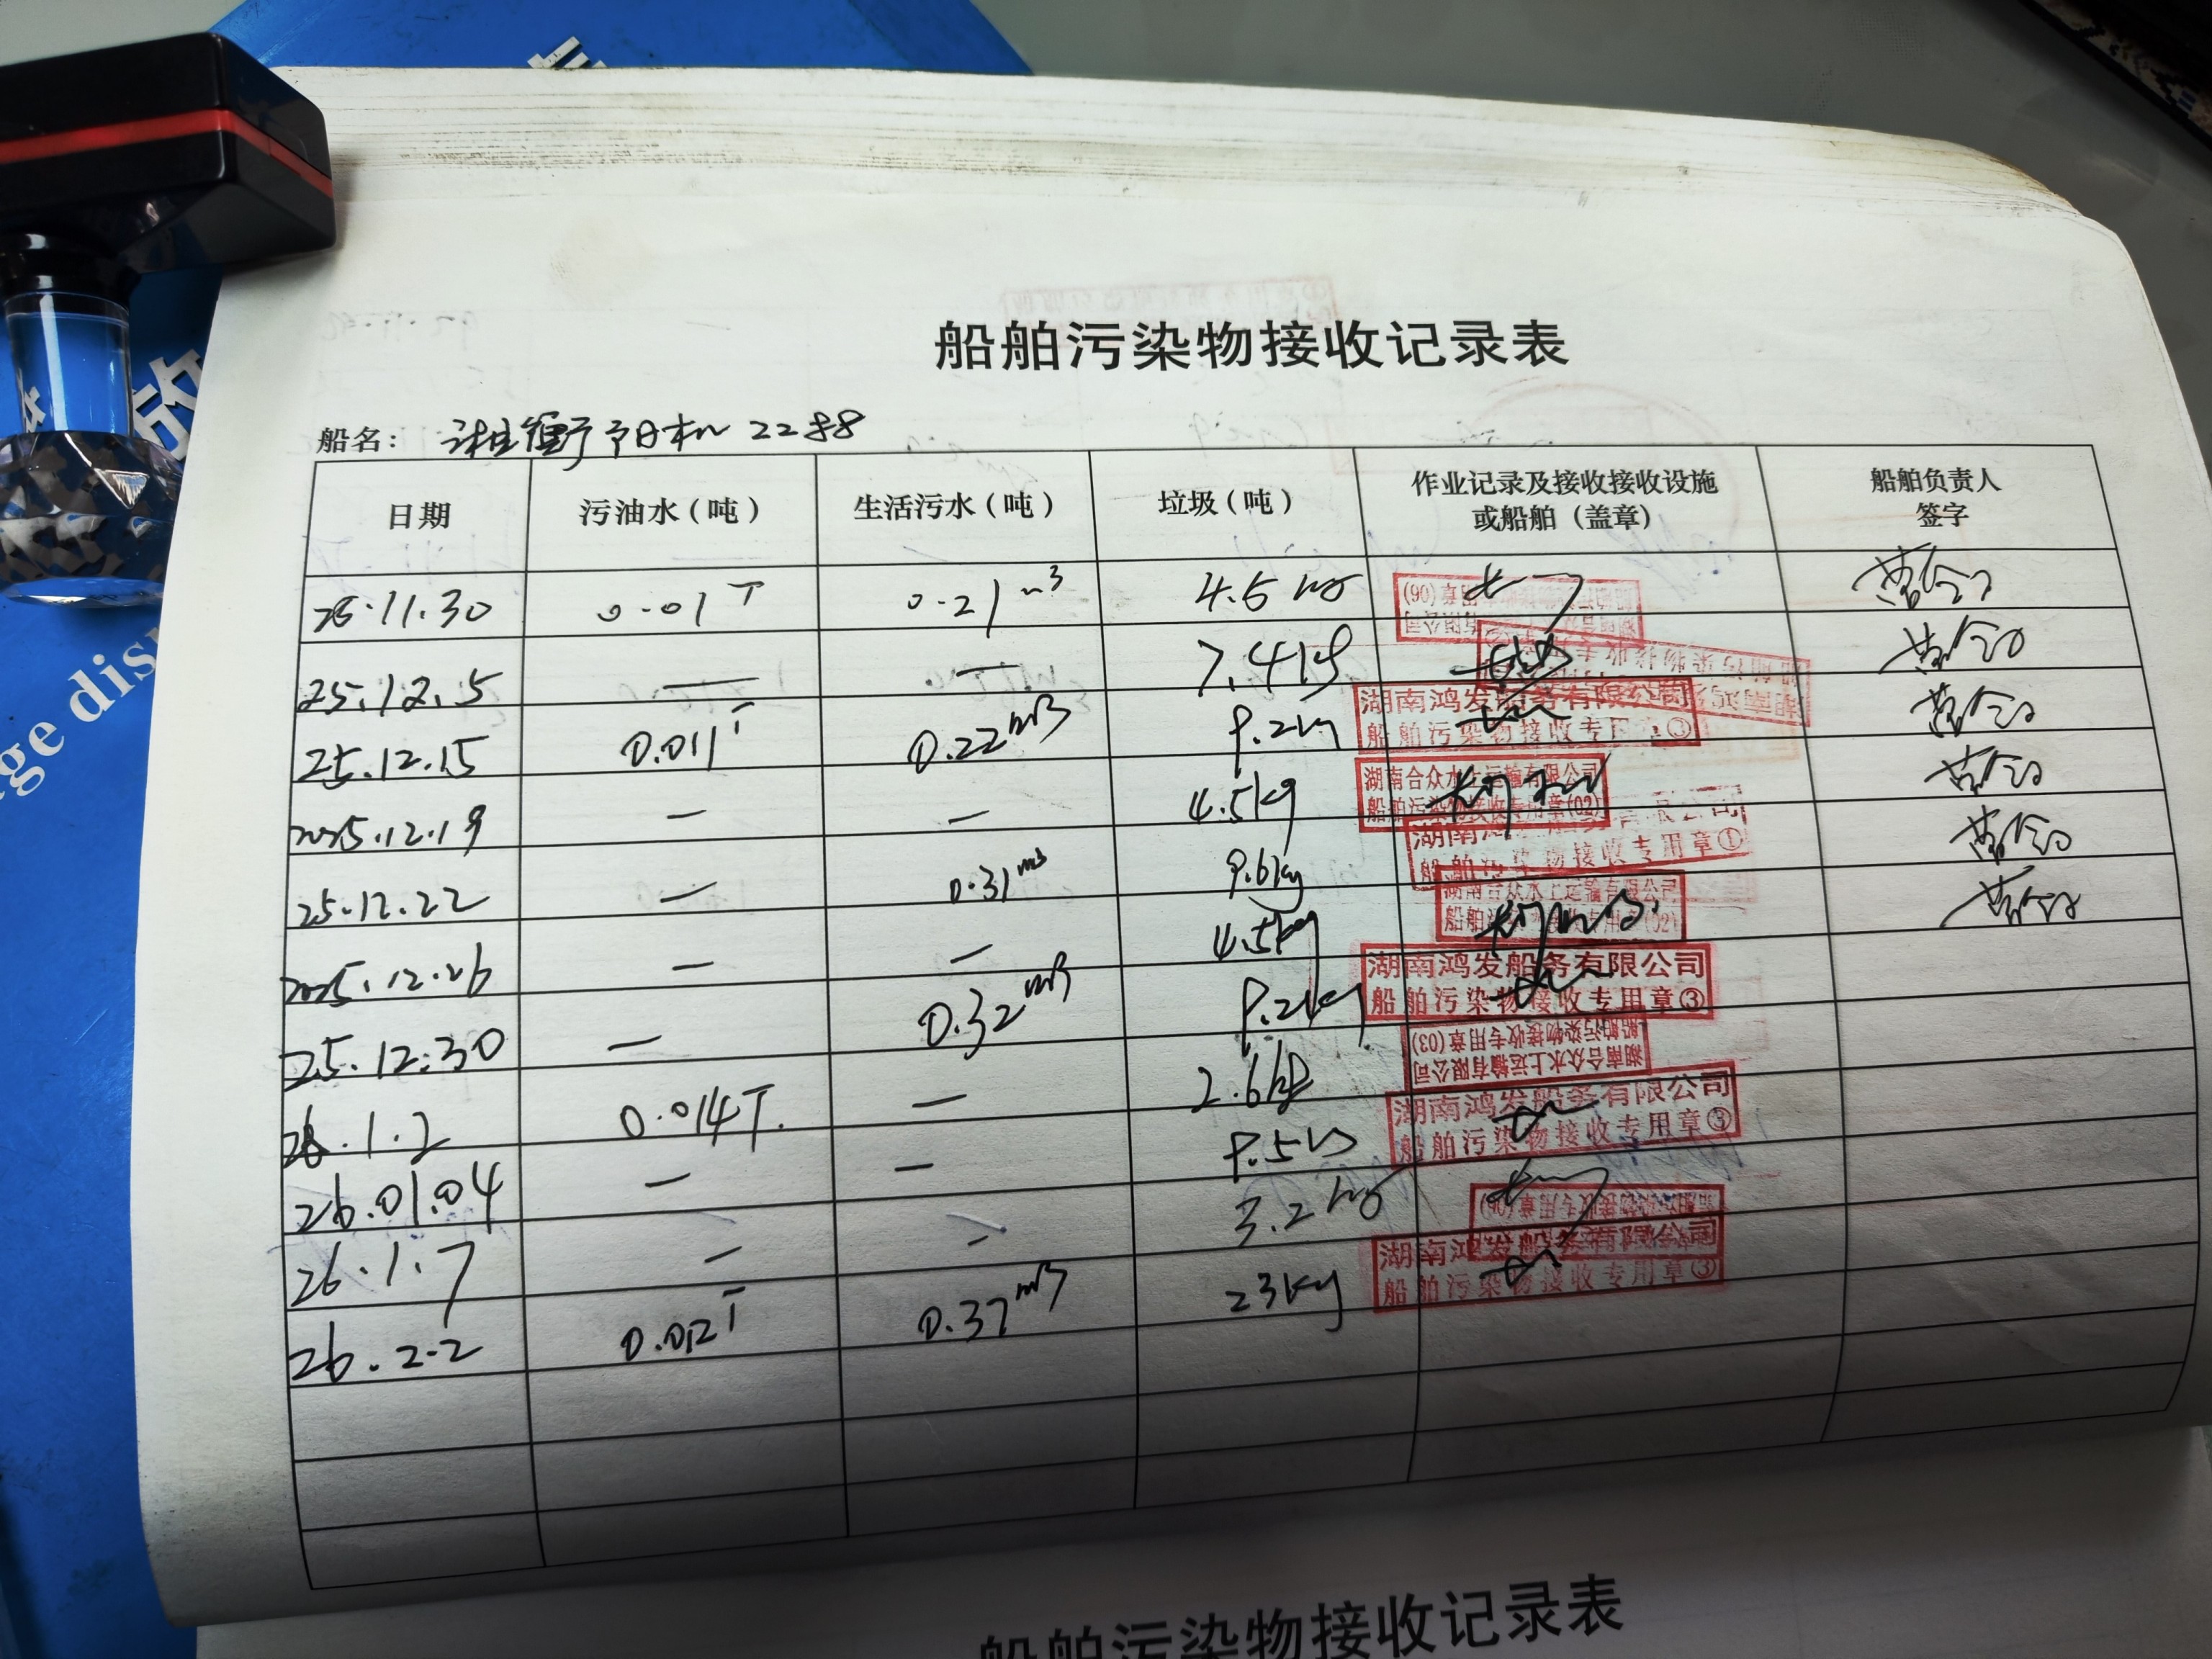 放
ge dis
船舶污染物接收记录表
船名： 湘衡阳机 2288
日期 污油水（吨） 生活污水（吨） 垃圾（吨） 作业记录及接收接收设施或船舶（盖章） 船舶负责人签字
25.11.30 0.01T 0.21m³ 4.5kg
25.12.5 — — 7.4kg
25.12.15 0.011T 0.22m³ 9.2kg 湖南鸿发船务有限公司 船舶污染物接收专用章③
2025.12.19 — — 4.5kg 湖南合众水上运输有限公司 船舶污染物接收专用章(02)
25.12.22 — 0.31m³ 9.6kg 船舶污染物接收专用章①
2025.12.26 — — 4.5kg 湖南合众水上运输有限公司
25.12.30 — 0.32m³ 9.2kg 湖南鸿发船务有限公司 船舶污染物接收专用章③
26.1.2 0.014T. — 2.6kg 湖南合众水上运输有限公司 船舶污染物接收专用章(03)
26.01.04 — — 9.5kg 湖南鸿发船务有限公司 船舶污染物接收专用章③
26.1.7 — — 3.2kg
26.2.2 0.012T 0.37m³ 23kg 湖南鸿发船务有限公司 船舶污染物接收专用章③
船舶污染物接收记录表